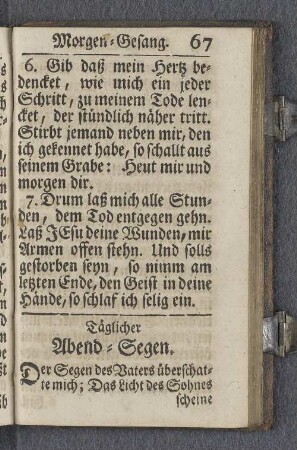 Morgen-Gesang. 67
6. Gib daß mein Hertz be-
dencket, wie mich ein jeder
Schritt, zu meinem Tode len-
cket, der stündlich näher tritt.
Stirbt jemand neben mir, den
ich gekennet habe, so schallt aus
seinem Grabe: Heut mir und
morgen dir.
7. Drum laß mich alle Stun-
den, dem Tod entgegen gehn.
Laß JEsu deine Wunden, mir
Armen offen stehn. Und solls
gestorben seyn, so nimm am
letzten Ende, den Geist in deine
Hände, so schlaf ich selig ein.
Täglicher
Abend-Segen.
Der Segen des Vaters überschat-
te mich; Das Licht des Sohnes
scheine